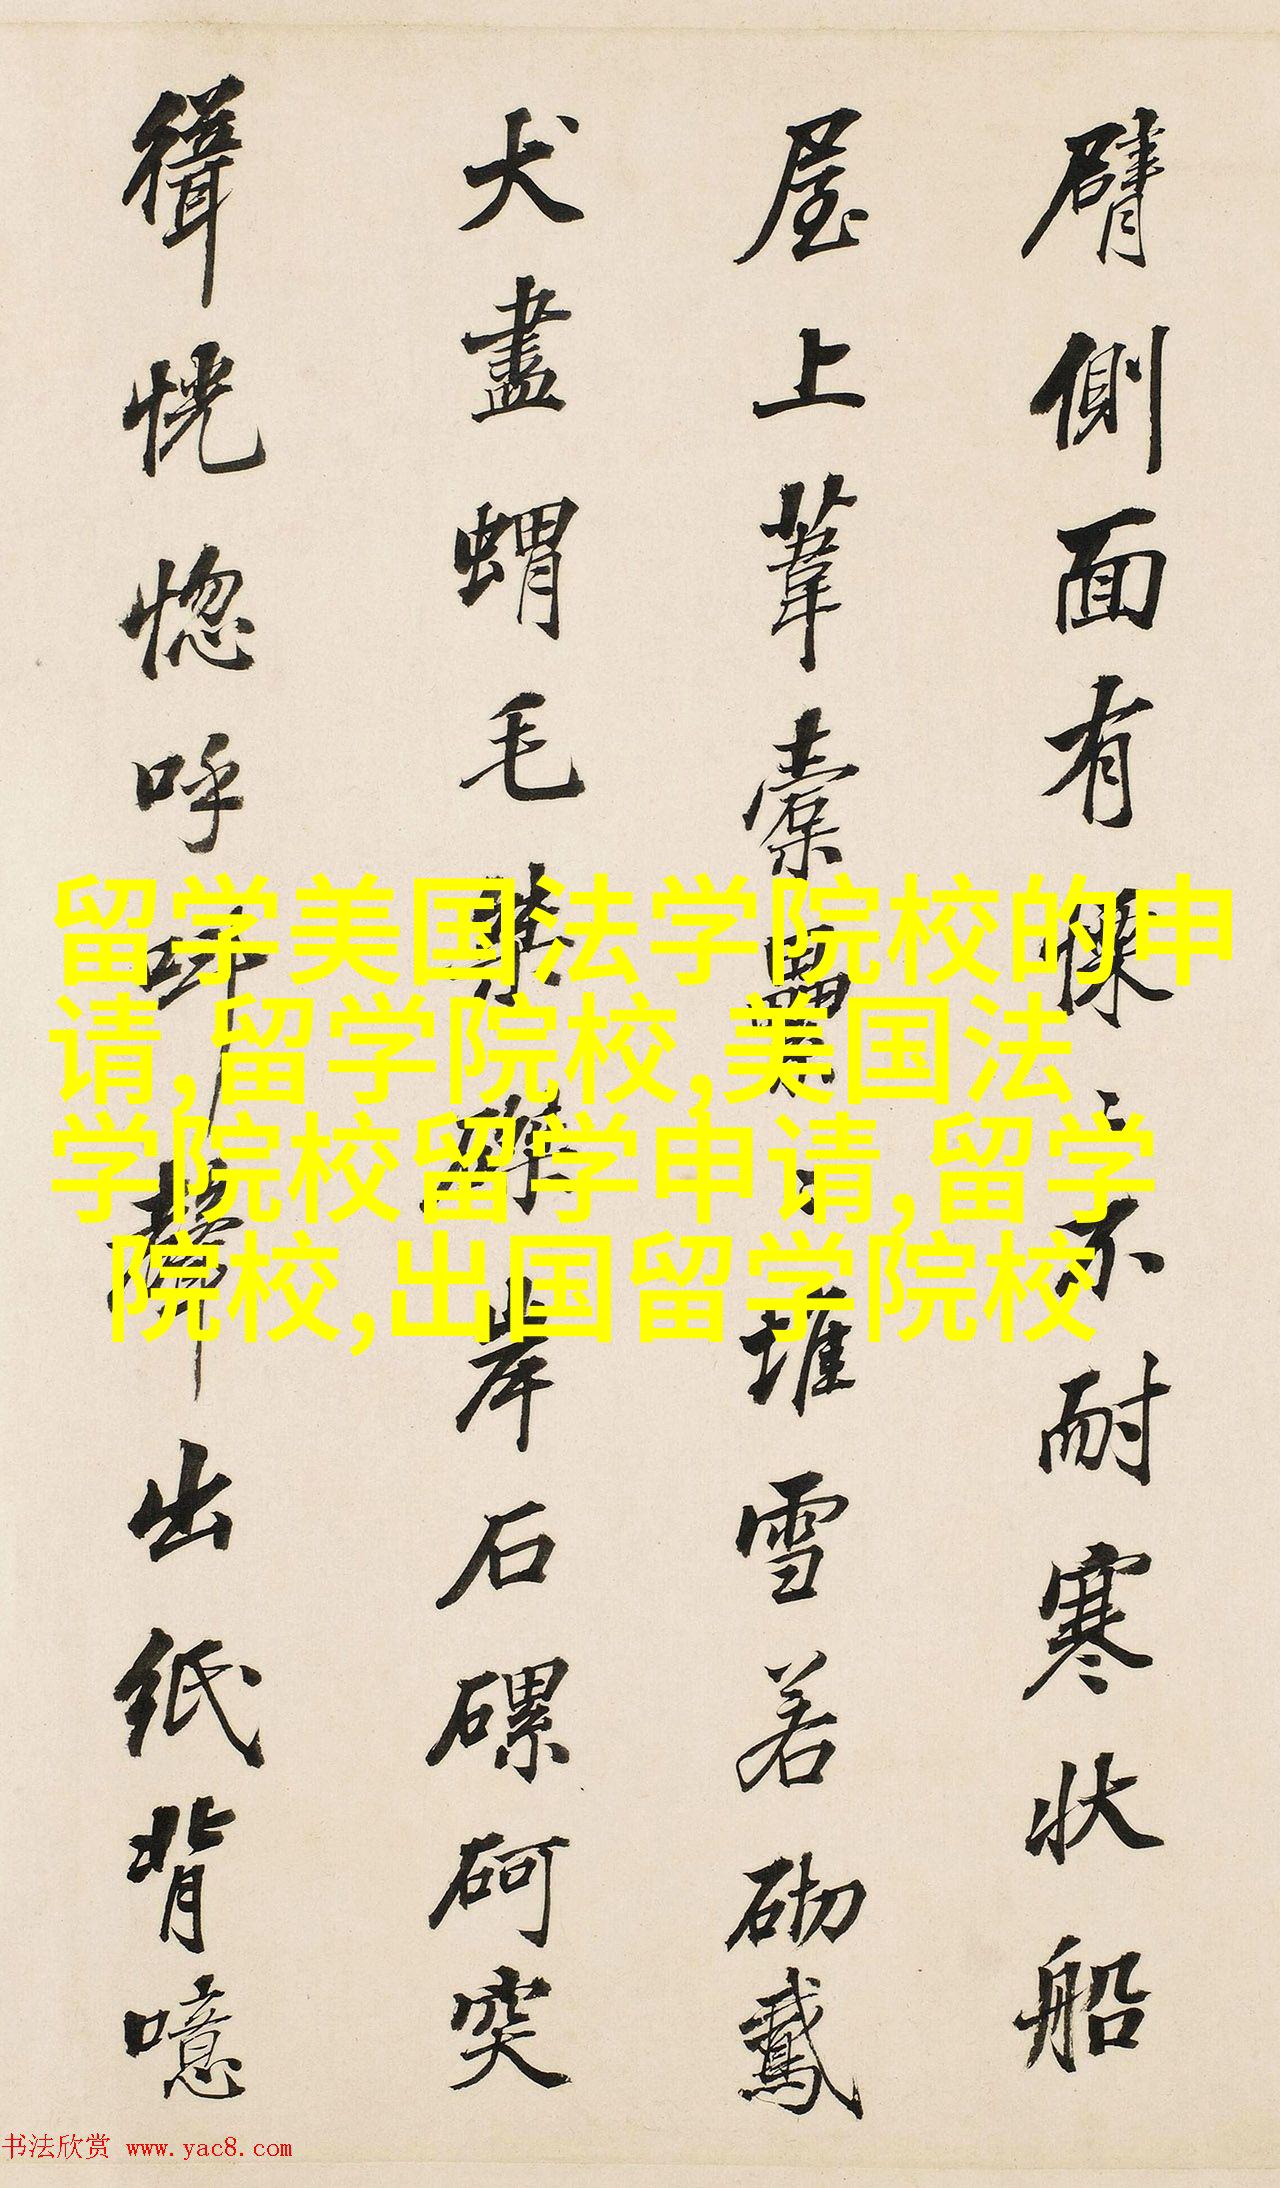 臂側面有慄〻不耐寒状船
屋上葦橐纍〻堆雪若砌鳶
犬盡蝟毛磔 岸石磥砢突
緝恍惚呼 聲出紙背噫
留学美国法学院校的申
请,留学院校,美国法
学院校留学申请,留学
院校,出国留学院校
书法欣赏 www.yac8.com